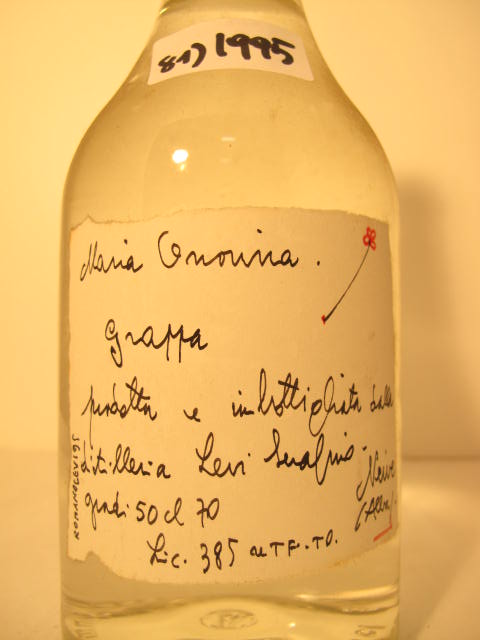 81) 1995
Maria Onorina.
Grappa
prodotta e imbottigliata dalla
distilleria Levi Serafino -
Neive
(Alba)
gradi 50 cl 70
Lic. 385 UTF-TO.
ROMANO LEVI 95